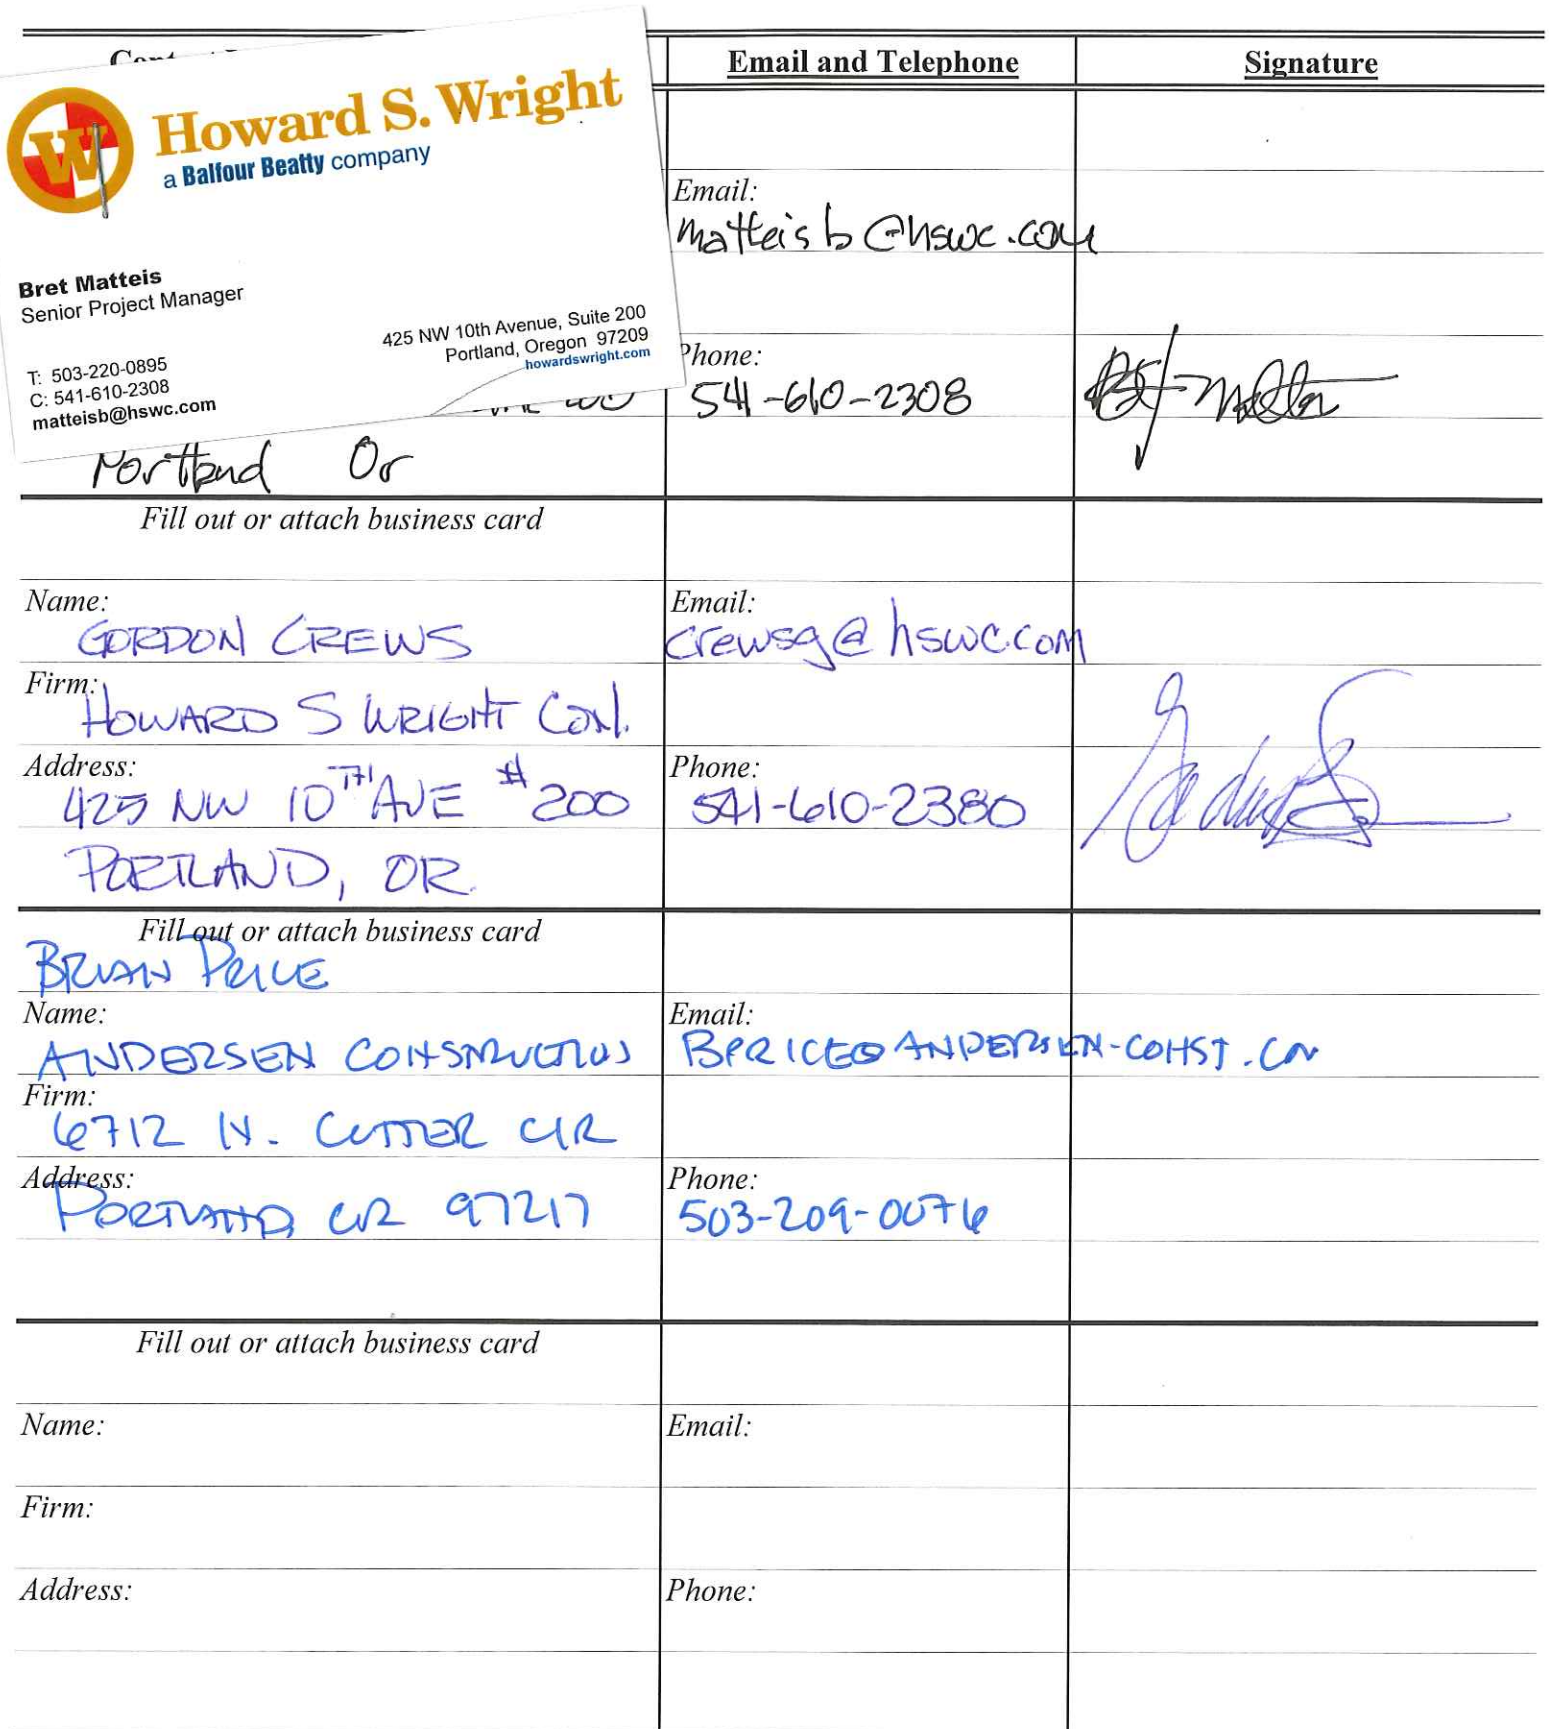 Email and Telephone
Signature
Howard S. Wright
a Balfour Beatty company
Bret Matteis
Senior Project Manager
T: 503-220-0895
C: 541-610-2308
matteisb@hswc.com
425 NW 10th Avenue, Suite 200
Portland, Oregon 97209
howardswright.com
Portland Or
Email:
matteisb@hswc.com
Phone:
541-610-2308
Fill out or attach business card
Name:
GORDON CREWS
Email:
crewsg@hswc.com
Firm:
HOWARD S WRIGHT CON.
Address:
425 NW 10TH AVE #200
PORTLAND, OR.
Phone:
541-610-2380
Fill out or attach business card
BRIAN PRICE
Name:
ANDERSEN CONSTRUCTION
Email:
BPRICE@ANDERSEN-CONST.COM
Firm:
6712 N. CUTTER CIR
Address:
PORTLAND, OR 97217
Phone:
503-209-0076
Fill out or attach business card
Name:
Email:
Firm:
Address:
Phone: